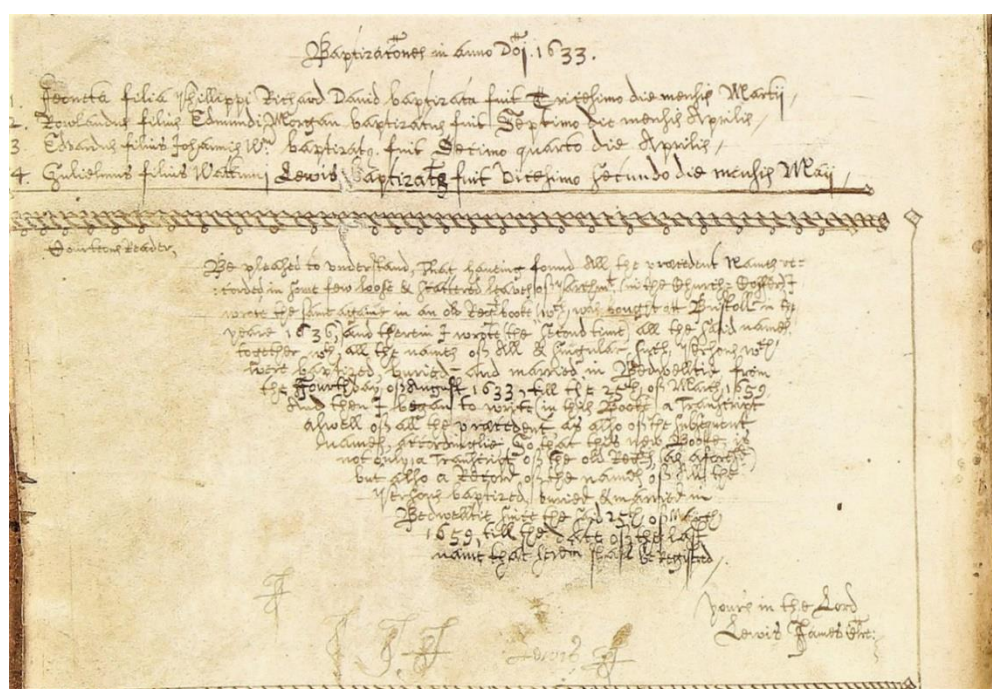 Baptizatones in anno Doj. 1633.
1. Jeneta filia Phillippi Richard David baptizata fuit Tricesimo die mensis Martij
2. Rowlandus filius Edmundi Morgan baptizatus fuit Septimo die mensis Aprilis
3 Edvardus filius Johannis Wm. baptizatq. fuit Decimo quarto die Aprilis
4. Gulielmus filius Wattkini Lewis baptizatq fuit vicesimo secundo die mensis Maij
Courteous Reader,
Be pleased to understand, That haveing found All the precedent Names re=
:corded in some few loose & scattered leaves of Parchmt (in the Church Coffer) I
wrote the same againe in an old Regr booke (wch was bought at Bristoll in the
yeare 1636) and therein I wrote (the second time) all the said names
together wth all the names of All & Singular such Persons wch
were baptized, buried and married in Bedwelltie from
the Fourth day of August 1633, till the 25th of March 1659
And then I began to write (in this Booke) a Transcript
aswell of all the precedent as also of the subsequent
names, accordinglie So that this new Booke, is
not only a Transcript of the old Regr, (as aforesd)
but also a Record of the names of All the
Persons baptized, buried & married in
Bedwelltie since the said 25th of March
1659, till the date of the last
name that herein shall be Registred
yours in the Lord
Lewis James Clre:
Lewis